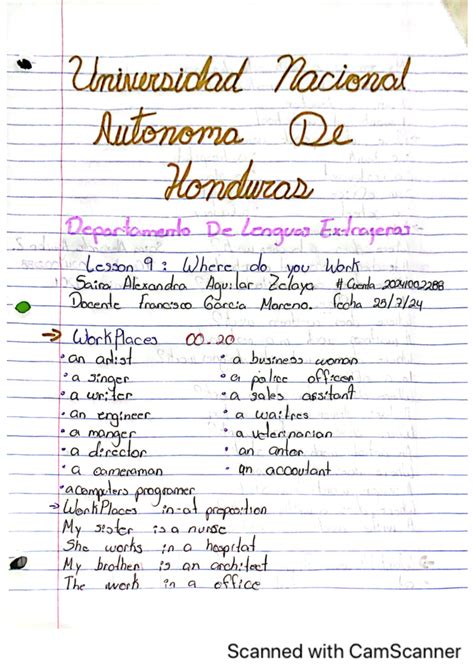 Universidad Nacional
Autonoma De
Honduras
Departamento De Lenguas Extrajeras
Lesson 9 : Where do you Work
Saira Alexandra Aguilar Zelaya # Cuenta 20241002288
Docente Francisco Garcia Moreno. fecha 25/7/24
→ WorkPlaces 00.20
• an artist • a business woman
• a singer • a police officer
• a writer • a sales assitant
• an engineer • a waitres
• a manger • a veterinarian
• a director • an antor
• a cameraman • an accoutant
• a computers programer
→ WorkPlaces in-at preposition
My sister is a nurse
She works in a hospital
My brother is an architect
The work in a office
Scanned with CamScanner